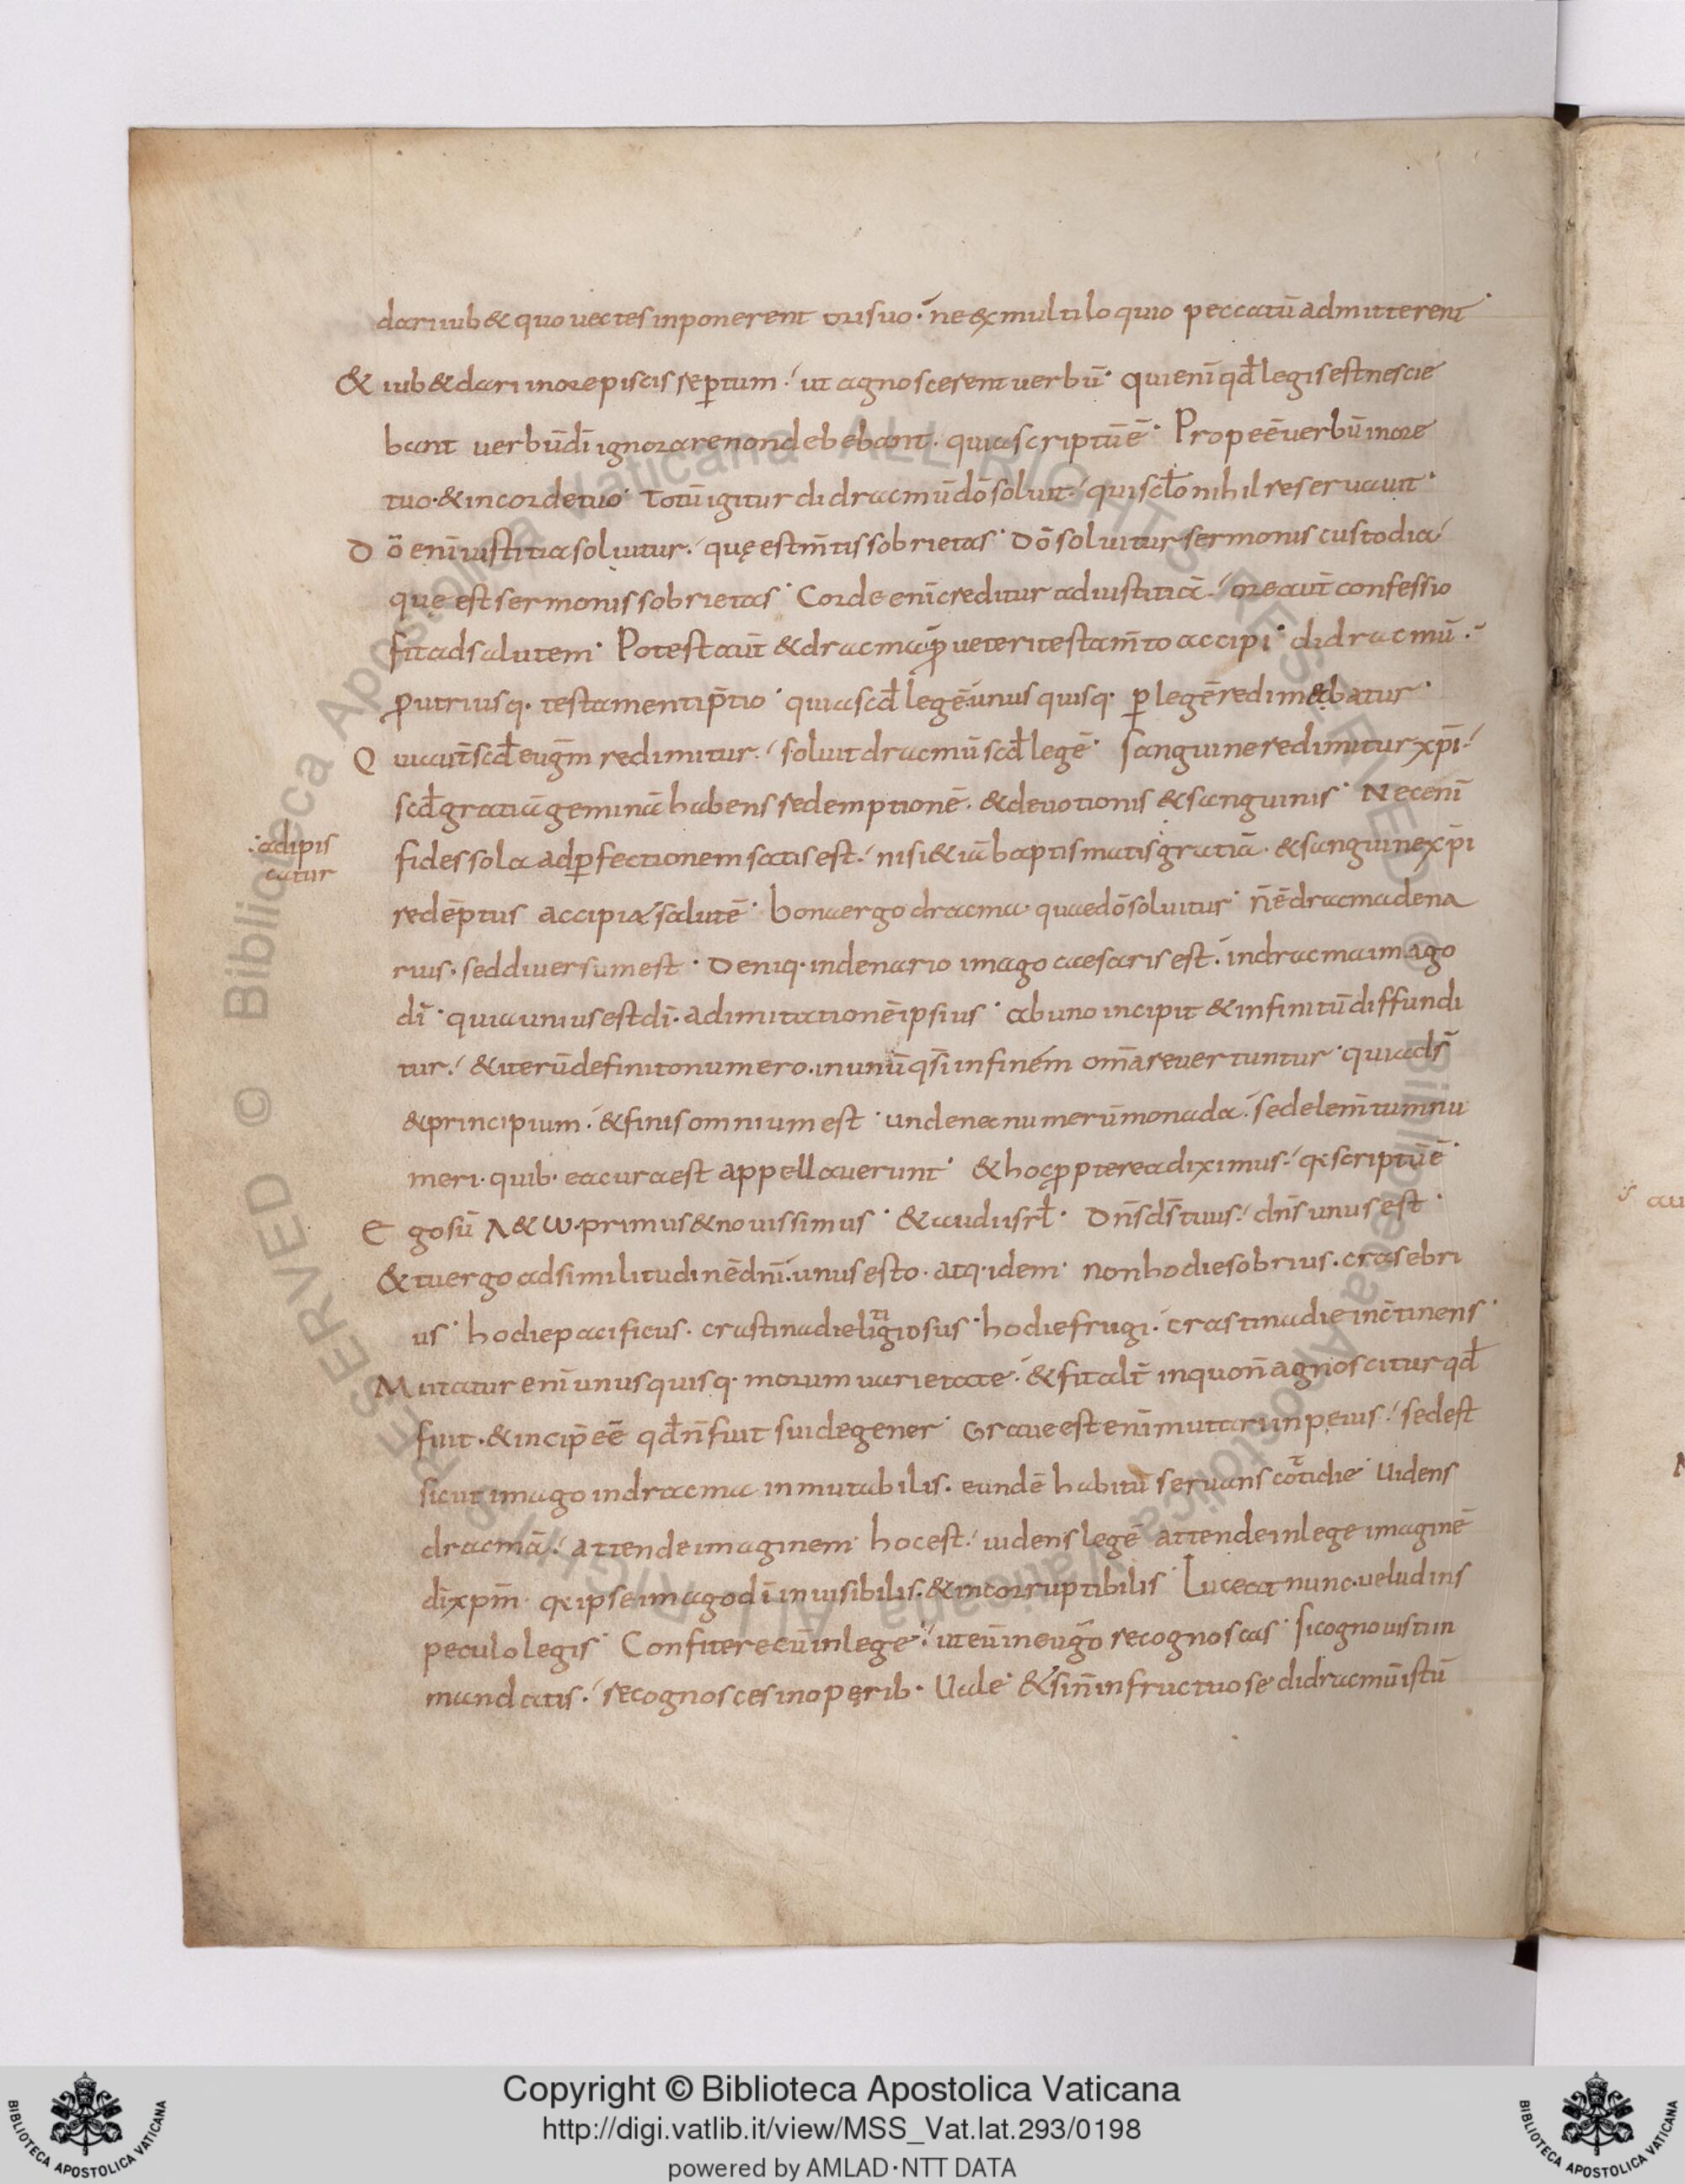 dari iub& quo uectes inponerent ori suo· ne ex multiloquio peccatū admitterent·
& iub& dari in ore piscis septum· ut agnoscerent uerbū· qui enī qđ legis est nescie
bant uerbū dī ignorare non debebant· quia scriptū ē· Prope ē uerbū in ore
tuo· & in corde tuo· Totū igitur didracmū dō soluit· qui sctō nihil reseruauit·
Dō enī iustitia soluitur· quę est m̄tis sobrietas· Dō soluitur sermonis custodia
que est sermonis sobrietas· Corde enī creditur ad iustitiā· ore aut̄ confessio
fit ad salutem· Potest aut̄ & dracma p̱ ueteri testam̄to accipi· didracmū·
p utriusq· testamenti p̄tio· quia scđ legē unusquisq· p legē redim&batur·
Qui aut̄ scđ eug̅m redimitur· soluit dracmū scđ legē· sanguine redimitur xp̄i
scđ gratiā geminā habens redemptionē· & deuotionis & sanguinis· Nec enī
:adipis
catur
fides sola ad pfectionem satis est· nisi & iā baptismatis gratiā· & sanguine xp̄i
redēptus accipiat salutē· bona ergo dracma quae dō soluitur· n̄ ē dracma dena
rius· sed diuersum est· Deniq· in denario imago caesaris est· in dracma imago
dī· quia unius est dī· ad imitationē ipsius· ab uno incipit & infinitū diffundi
tur· & iterū de finito numero· in unū qsī in finem om̄a reuertuntur· quia ds̄
& principium· & finis omnium est· unde nec numerū monada· sed elem̄tum nu
meri· quib· ea cura est appellauerunt· & hoc p̱pterea diximus· qi scriptū ē·
Ego sū Λ & ω· primus & nouissimus· & audi isrl̄· Dn̄s ds̄ tuus· dn̄s unus est·
& tu ergo ad similitudinē dn̄i· unus esto· atq· idem· non hodie sobrius· cras ebri
us· hodie pacificus· crastina die litigiosus· hodie frugi· crastina die incōtinens·
Mutatur enī unusquisq· morum uarietate· & fit alt̄ in quo n̄ agnoscitur qđ
fuit· & incip̄ eē qđ n̄ fuit sui degener· Graue est enī mutari in peius· sed est
sicut imago in dracma inmutabilis· eundē habitū seruans cottidie· Uidens
dracmā· attende imaginem· hoc est· uidens legē attende in lege imaginē
dī xp̄m· qi ipse imago dī inuisibilis· & incorruptibilis· Luceat nunc uelud in s
peculo legis· Confitere eū in lege· ut eū in eug̅o recognoscas· si cognouisti in
mandatis· recognosces in operib· Uale· & si n̄ infructuose didracmū istū